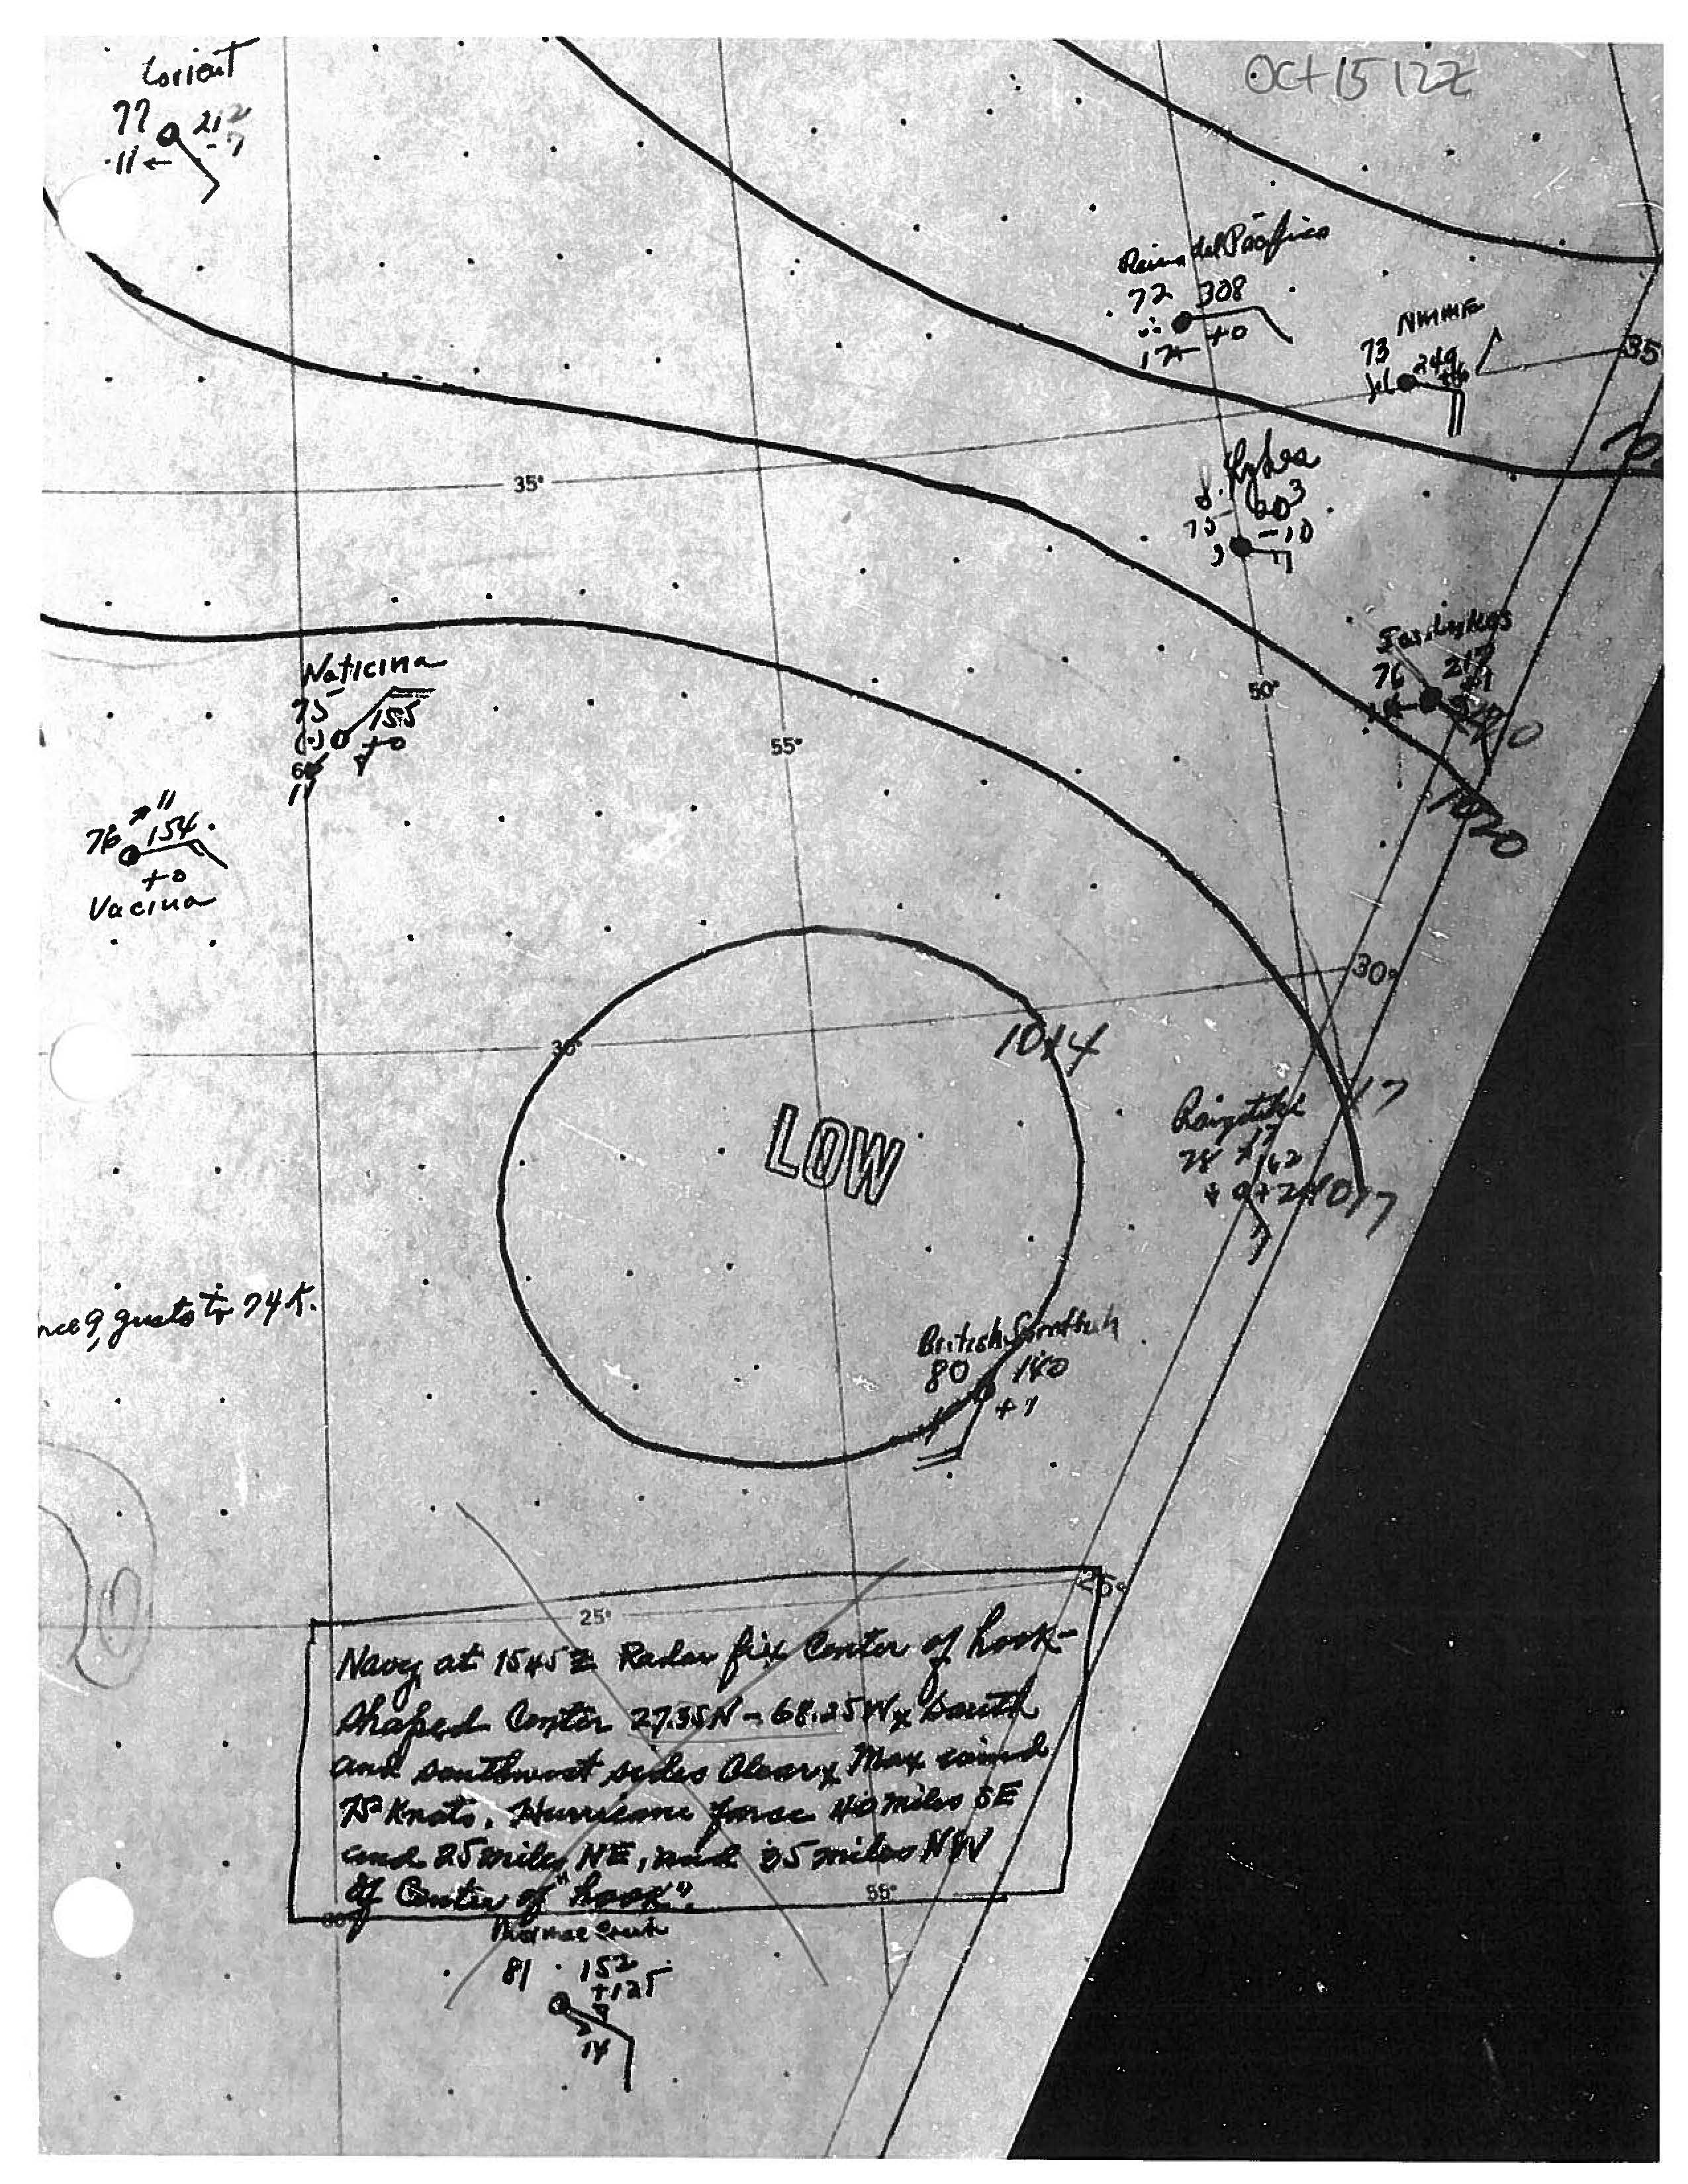 Oct 15 12Z
Lorient
77 212
-7
11
Reina del Pacifico
72 308
+0
17
NMMF
73 249
35
35°
Lykes
203
-10
50°
76 217
Naticina
75 155
+0
6
11
55°
11
76 154
+0
Vacina
1020
30°
30°
1014
17
LOW
78 162
+2
1017
gusts to 74 K.
British
80 140
+7
25°
25°
Navy at 1545Z Radar fix Center of hook-
shaped Center 27.35N - 68.25W x South
and southwest sides Clear x Max wind
75 Knots. Hurricane force 40 miles SE
and 25 miles NE, and 35 miles NW
of Center of "hook".
55°
60°
81 152
+125
14